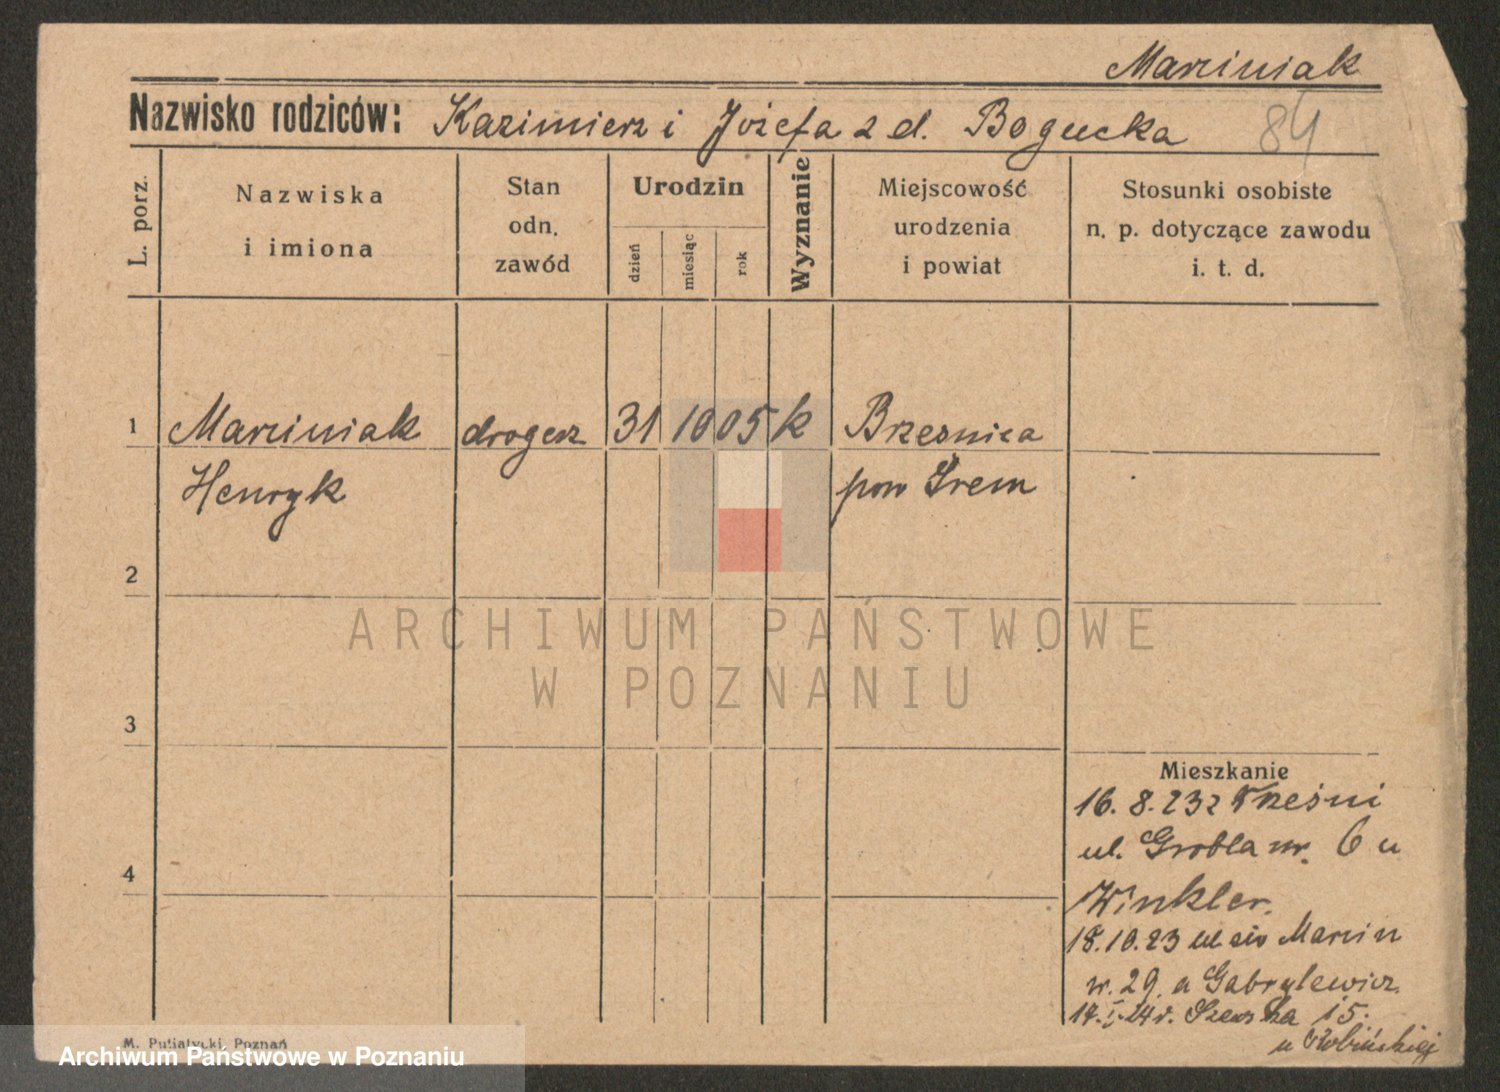 Marciniak
Nazwisko rodziców: Kazimierz i Józefa z d. Bogucka 84
L. porz.
Nazwiska
i imiona
Stan
odn.
zawód
Urodzin
dzień
miesiąc
rok
Wyznanie
Miejscowość
urodzenia
i powiat
Stosunki osobiste
n. p. dotyczące zawodu
i. t. d.
1 Marciniak drogerz 31 10 05 k Brzesnica
Henryk pow Śrem
2
ARCHIWUM PAŃSTWOWE
W POZNANIU
3
Mieszkanie
16. 8. 23 z Wrześni
ul. Grobla nr. 6 u
4
Winkler.
18.10.23 ul św Marcin
nr. 29 a Gabrylewicz.
17. I. 24 r. Szewska 15.
u
M. Putiatycki, Poznań
Archiwum Państwowe w Poznaniu